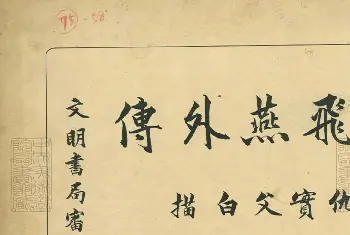 飛燕外傳
仇實父白描
文明書局審
75-58